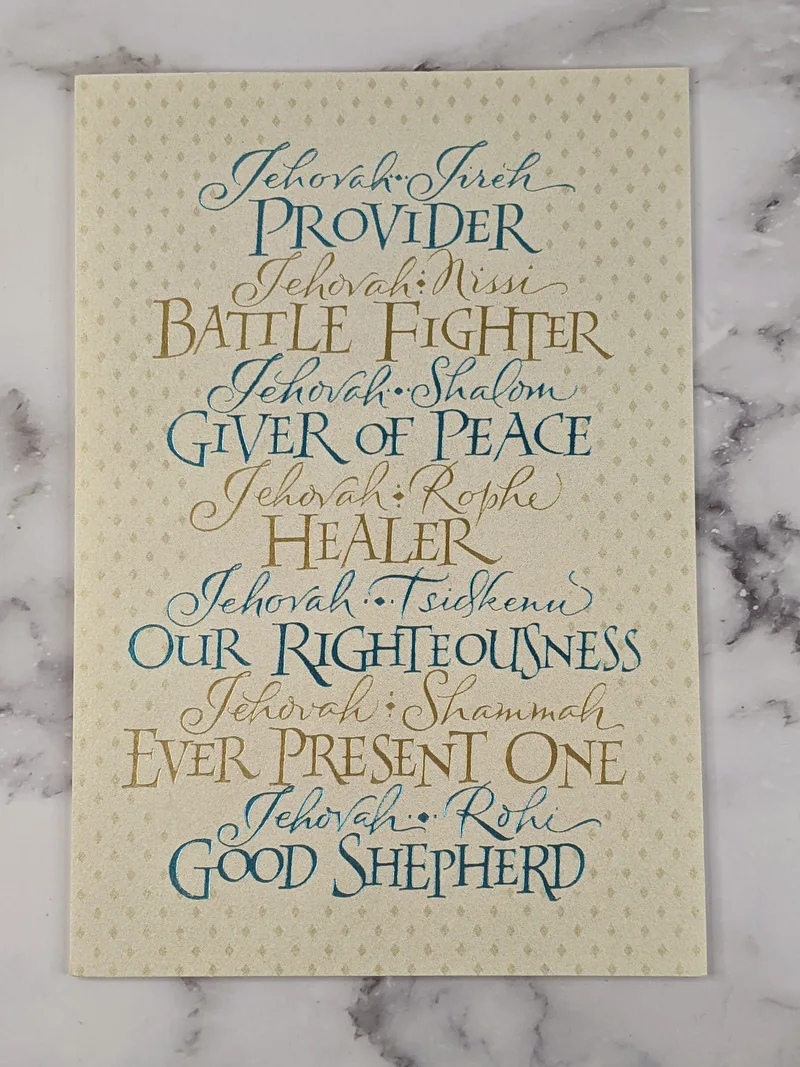 Jehovah · Jireh
PROVIDER
Jehovah · Nissi
BATTLE FIGHTER
Jehovah · Shalom
GIVER OF PEACE
Jehovah · Rophe
HEALER
Jehovah · Tsidkenu
OUR RIGHTEOUSNESS
Jehovah · Shammah
EVER PRESENT ONE
Jehovah · Rohi
GOOD SHEPHERD